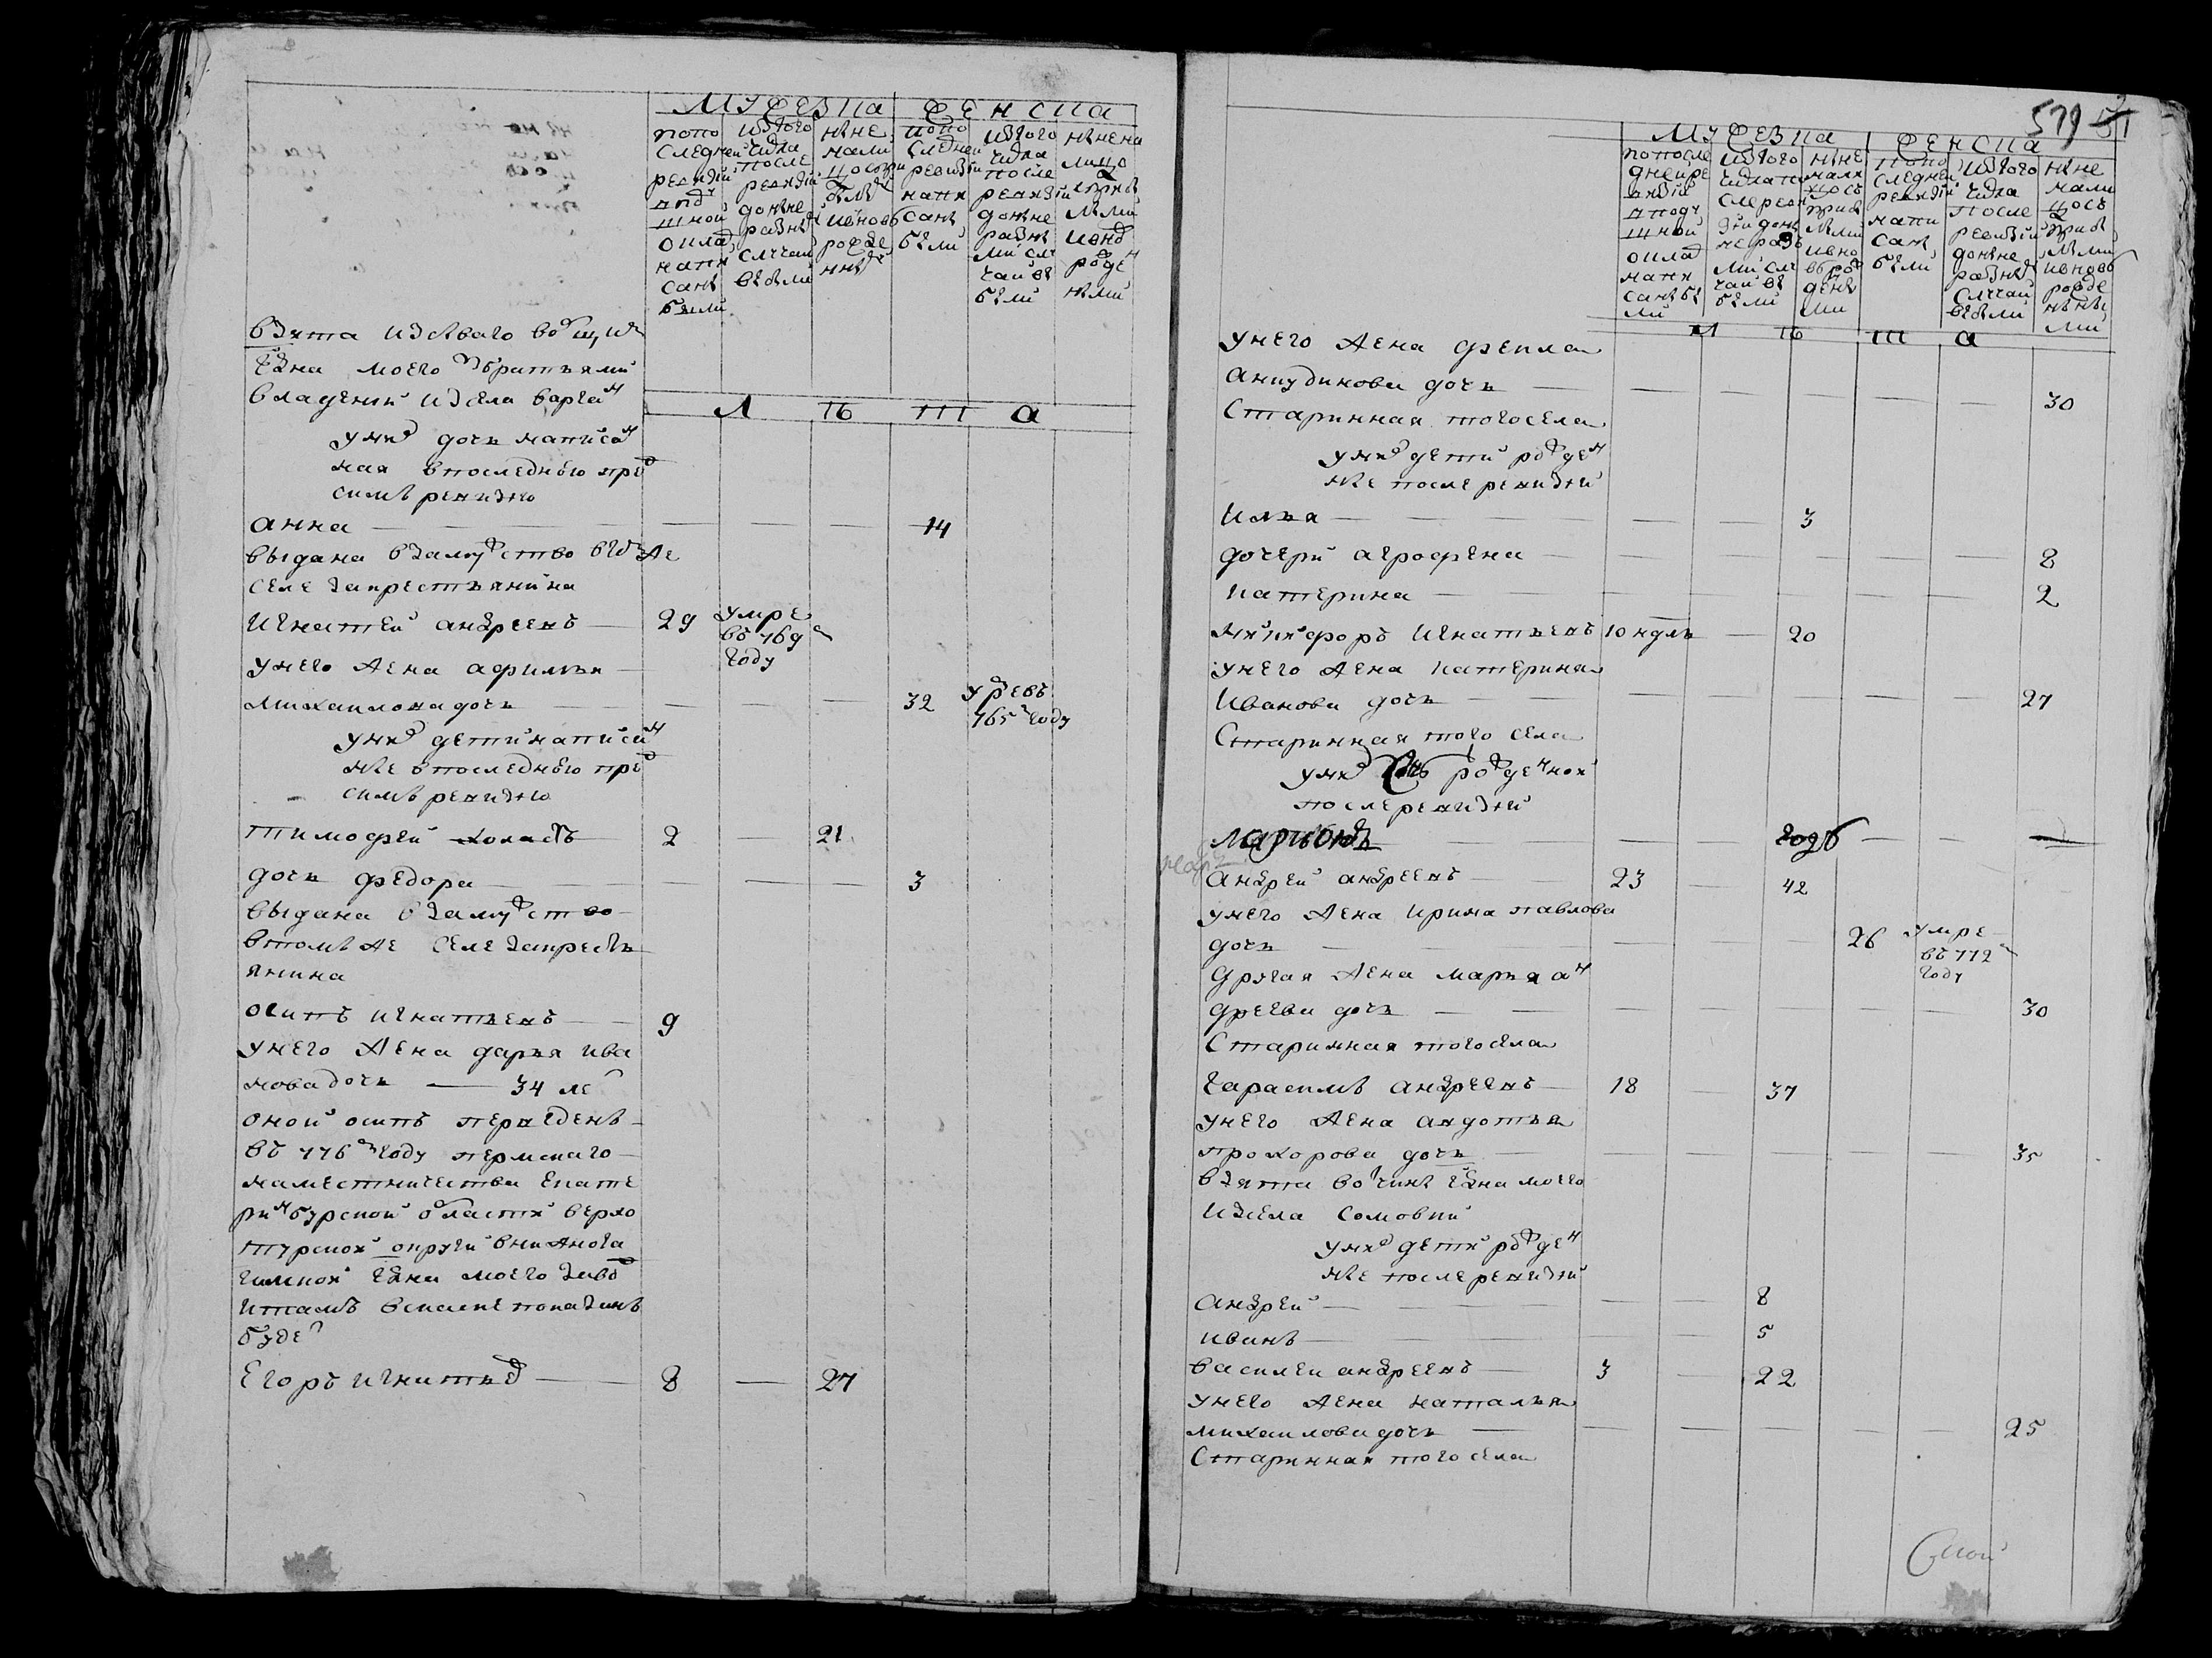 мужеска женска
попо следней ревизїи в подушной оклад написаны были
изтого числа после ревизїи до ныне разными случаи выбыли
ныне налицо с прибылыми и вновь рожденными
попо следней ревизїи написаны были
изтого числа после ревизїи до ныне разными случаи выбыли
ныне налицо с прибылыми и вновь рожденными
взята
гдна моего братьями
владений изсела
л ѣ т а
уних дочь написан
ная впоследнюю пре
симъ ревизию
анна — 14
выдана взамужство втомъ же
селе закрестьянина
Игнатей андреевъ — 29 умре въ 769м году
унего жена афимья
михаилова дочь — 32 умре въ 765м году
уних дети написан
ные впоследнюю пре
симъ ревизию
тимофей холостъ 2 — 21
дочь федора — 3
выдана взамужство
втомъ же селе закресть
янина
осипъ игнатьевъ — 9
унего жена дарья ива
нова дочь — 34 ле
оной осипъ переведенъ
въ 776м году пермскаго
наместничества екате
ринбурской области верхо
турской округи внижнота
гилской гдна моего завод
итамъ вскаске показанъ
буде
Егоръ игнатьев — 8 — 27
579
мужеска женска
попоследней ревизїи в подушной оклад написаны были
изтого числа после ревизїи до ныне разными случаи выбыли
ныне налицо с прибылыми и вновь рожденными
попо следней ревизїи написаны были
изтого числа после ревизїи до ныне разными случаи выбыли
ныне налицо с прибылыми и вновь рожденными
л ѣ т а
унего жена фекла
анкудинова дочь — 30
Старинная тогосела
уних дети рожден
ные после ревизїи
Илья — 3
дочери аграфена — 8
катерина — 2
никифоръ игнатьевъ 10 нделъ — 20
унего жена катерина
Иванова дочь — 27
Старинная того села
уних сынъ рожденной
после ревизїи
Ларионъ — годъ —
андрей андреевъ — 23 — 42
унего жена ирина павлова
дочь — 26 умре въ 772м году
другая жена марья ан
дреева дочь — 30
Старинная тогосела
Гарасимъ андреевъ — 18 — 37
унего жена авдотья
прохорова дочь — 35
взята вотчины гдна моего
изсела Сомовки
уних дети рожден
ные после ревизїи
андрей — 8
иванъ — 5
василеи андреевъ — 3 — 22
унего жена наталья
михаилова дочь — 25
Старинная того села